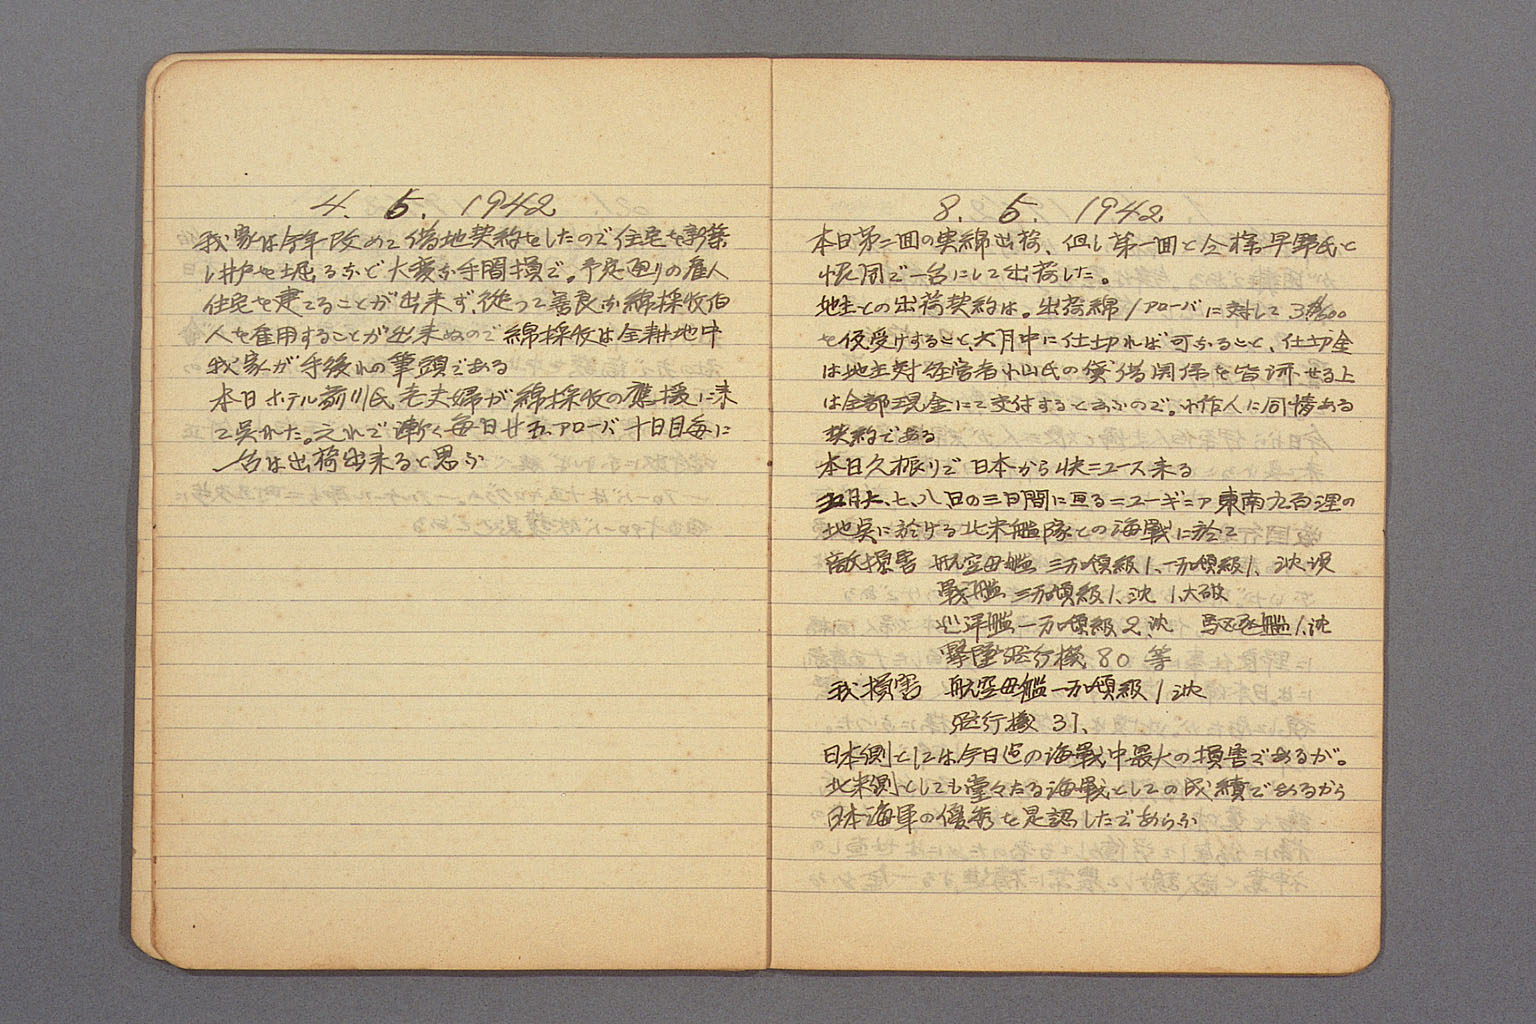 4. 5. 1942
我家は今年改めて借地契約をしたので住宅を新築
し井戸を堀るなど大変な手間損で。予定通りの雇人
住宅を建てることが出来ず、従って善良な綿採收伯
人を雇用することが出来ぬので綿採收は全耕地中
我家が手後れの筆頭である
本日ホテル前川氏老夫婦が綿採收の應援に来
て呉れた。之れで漸く毎日廿五アローバ十日目毎に
一台は出荷出来ると思ふ
8. 5. 1942.
本日第二回の実綿出荷、但し第一回と同様早野氏と
共同で一台にして出荷した。
地主との出荷契約は。出荷綿1アローバに対して3
を仮受けすること、六月中に仕切れば可なること、仕切金
は地主対経営者小山氏の貸借関係を皆済せる上
は全部現金にて交付すると云ふので。小作人に同情ある
契約である
本日久振りで日本から快ニュース来る
五月六、七、八、日の三日間に亘るニューギニア東南九百浬の
地点に於ける北米艦隊との海戦に於て
敵損害 航空母艦 三万噸級1、一万噸級1、沈没
戦艦 三万噸級1、沈 1、大破
巡洋艦一万噸級2、沈 駆逐艦1、沈
撃墜飛行機80等
我損害 航空母艦一万噸級1沈
飛行機31、
日本側としては今日迄の海戦中最大の損害であるが。
北米側としても堂々たる海戦としての成績であるから
日本海軍の優秀を是認したであらふ